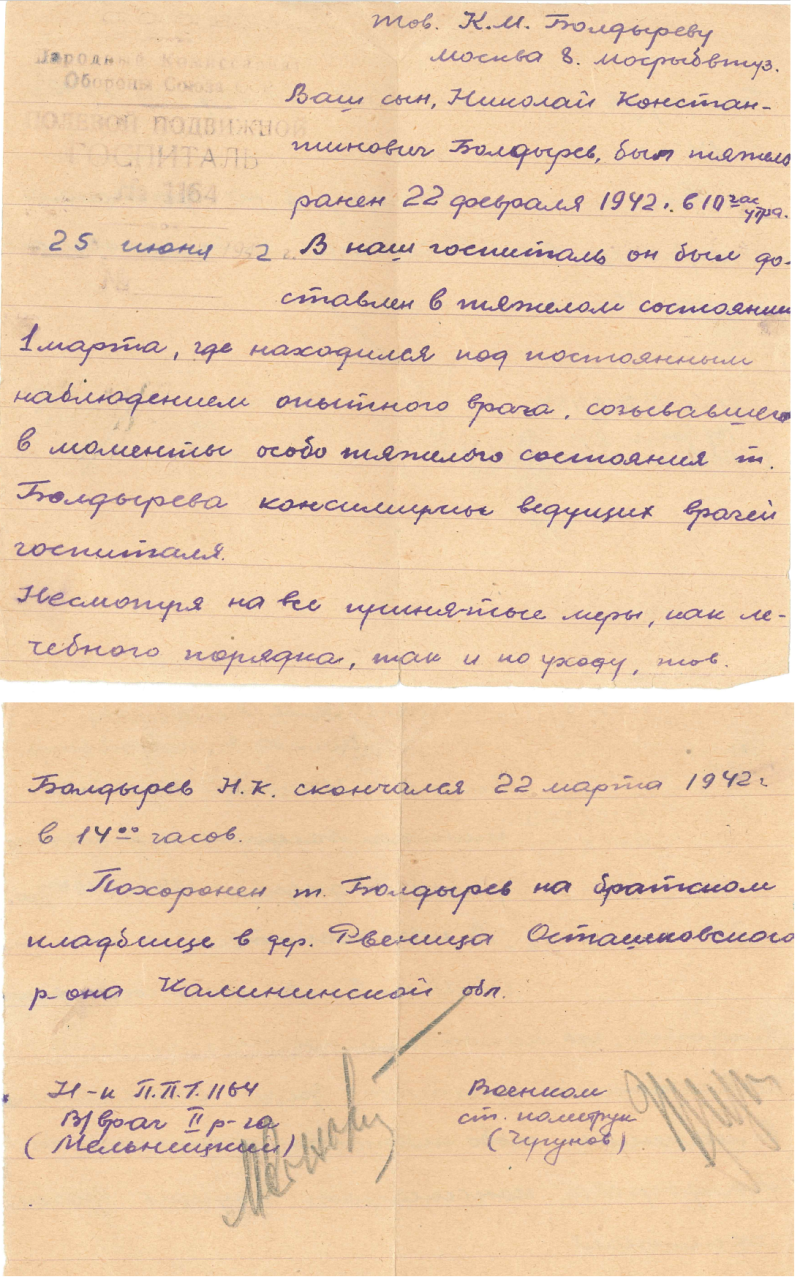 тов. К.М. Болдыреву
Москва 8. Мосрыбвтуз.
Народный Комиссариат
Обороны Союза
ПОЛЕВОЙ ПОДВИЖНОЙ
ГОСПИТАЛЬ
№ 1164
25 июня 1942 г.
№
Ваш сын, Николай Констан-
тинович Болдырев, был тяжело
ранен 22 февраля 1942 г. в 10 час утра.
В наш госпиталь он был до-
ставлен в тяжелом состоянии
1 марта, где находился под постоянным
наблюдением опытного врача, созывавшего
в моменты особо тяжелого состояния т.
Болдырева консилиумы ведущих врачей
госпиталя.
Несмотря на все принятые меры, как ле-
чебного порядка, так и по уходу, тов.
Болдырев Н.К. скончался 22 марта 1942 г
в 14⁰⁰ часов.
Похоронен т. Болдырев на братском
кладбище в дер. Рвеница Осташковского
р-она Калининской обл.
Н-к П.П.Г. 1164
В/врач II р-га
(Мельницкий)
Военком
ст. политрук
(Чугунов)